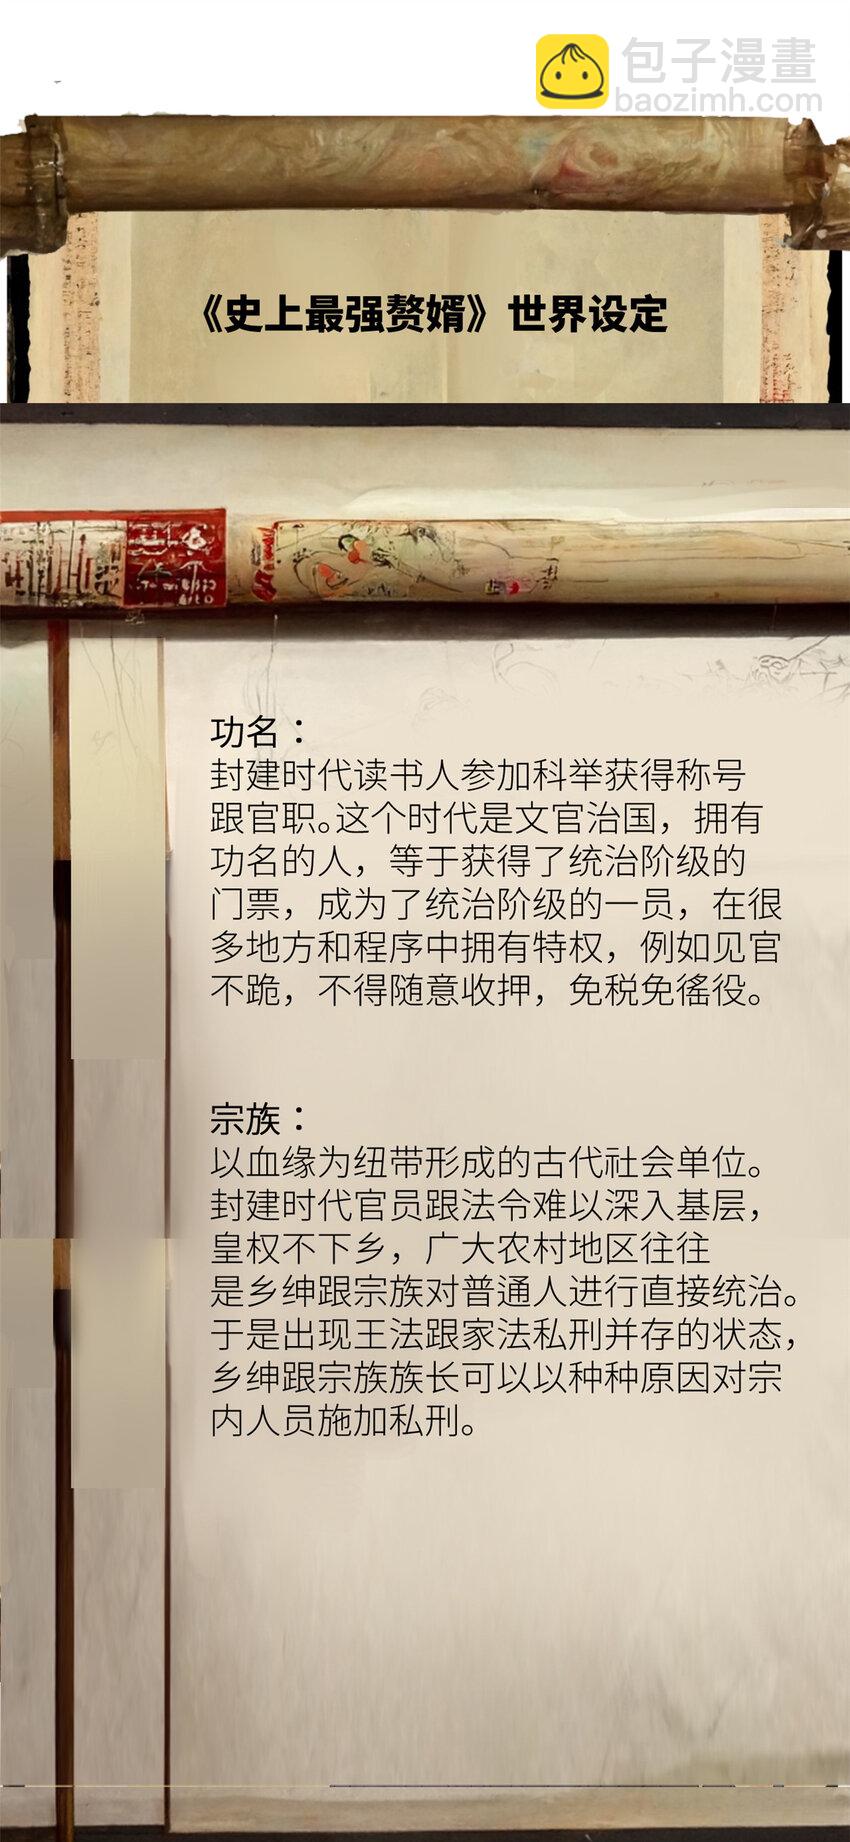 包子漫畫
baozimh.com
《史上最强赘婿》世界设定
功名：
封建时代读书人参加科举获得称号
跟官职。这个时代是文官治国，拥有
功名的人，等于获得了统治阶级的
门票，成为了统治阶级的一员，在很
多地方和程序中拥有特权，例如见官
不跪，不得随意收押，免税免徭役。
宗族：
以血缘为纽带形成的古代社会单位。
封建时代官员跟法令难以深入基层，
皇权不下乡，广大农村地区往往
是乡绅跟宗族对普通人进行直接统治。
于是出现王法跟家法私刑并存的状态，
乡绅跟宗族族长可以以种种原因对宗
内人员施加私刑。